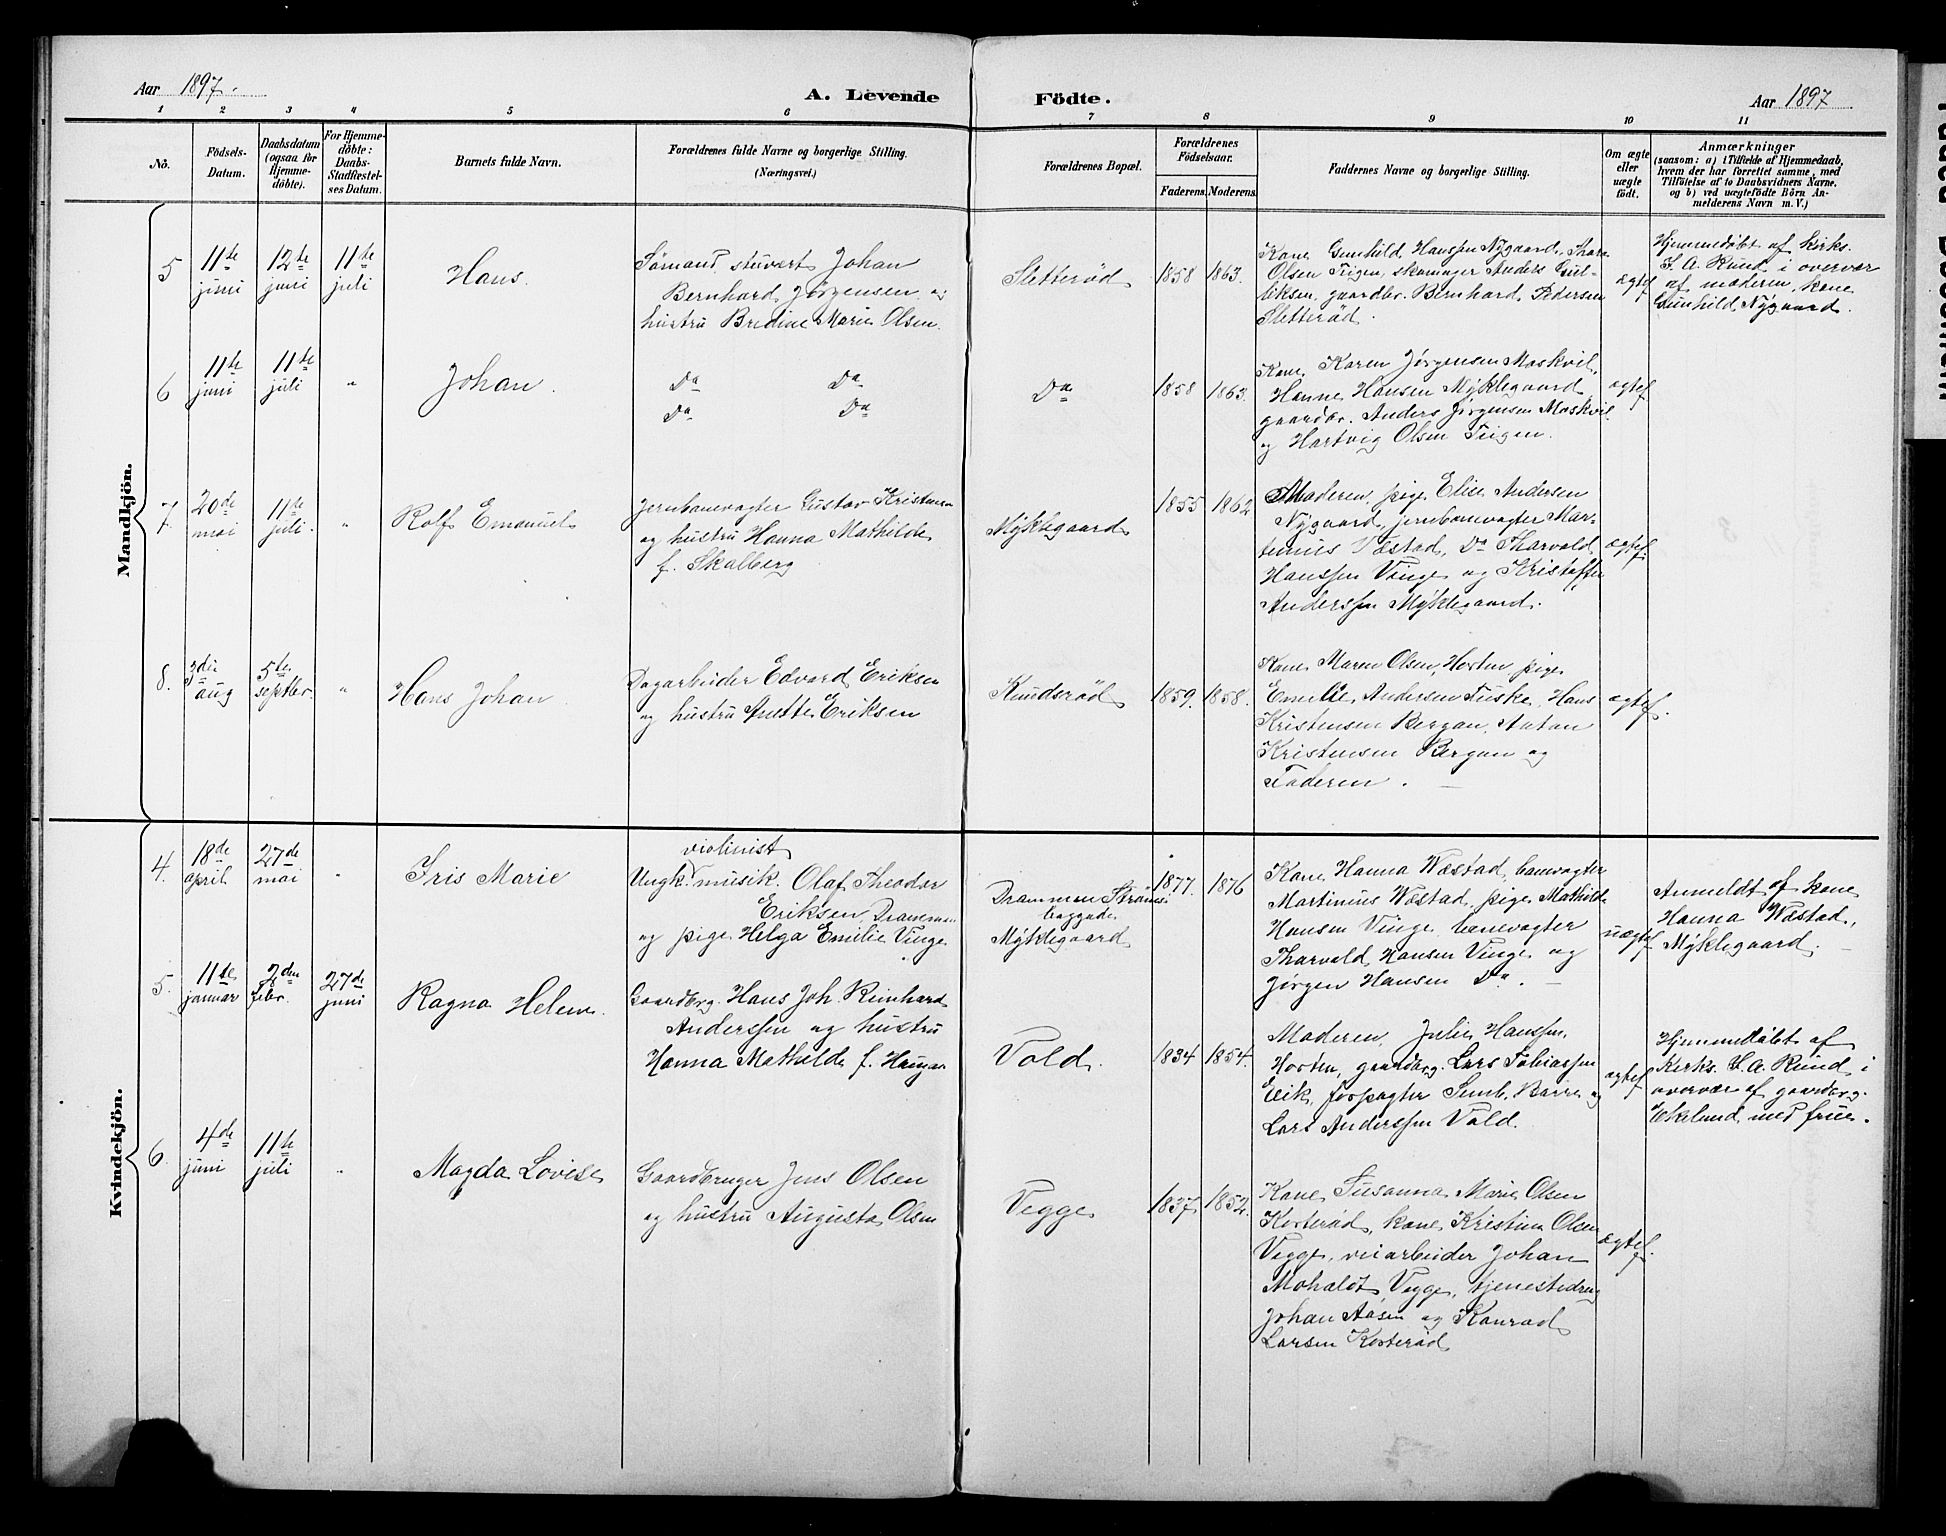 Aar 1897.
A. Levende Födte.
Aar 1897
1 2 3 4 5 6 7 8 9 10 11
No.
Födsels-Datum.
Daabsdatum (ogsaa for Hjemme-döbte).
For Hjemme-döbte: Daabs-Stadfæstel-ses Datum.
Barnets fulde Navn.
Forældrenes fulde Navne og borgerlige Stilling. (Næringsvei.)
Forældrenes Bopæl.
Forældrenes Födselsaar.
Faderens. Moderens.
Faddernes Navne og borgerlige Stilling.
Om ægte eller uægte födt.
Anmærkninger
(saasom: a) i Tilfælde af Hjemmedaab,
hvem der har forrettet samme, med
Tilföielse af to Daabsvidners Navne.
og b) ved uægtefödte Börn An-
melderens Navn m. V.)
Mandkjön.
5 11te juni 12te juni 11te juli
Hans.
Sömand, stuvert Johan
Bernhard Jörgensen og
hustru Bredine Marie Olsen.
Sletteröd 1858 1863.
Kone Gunhild Hanssen Nygaard,
Olsen Teigen, Anders Gul-
liksen, gaardbr. Bernhard Pedersen
Sletteröd.
ægtef.
Hjemmedöbt af kirks.
S. A. Rund i overvær
af moderen, kone
Gunhild Nygaard.
6 11te juni 11te juli "
Johan.
Do Do
Do Do
Do 1858 1863.
Kone Karen Jörgensen Moskvil,
Hanne Hansen Myklegaard
gaardbr. Anders Jörgensen Moskvil
og Hartvig Olsen Teigen.
ægtef.
7. 20de mai 11te juli. "
Rolf Emanuel
Jernbanevagter Gustav Kristensen
og hustru Hanna Mathilde
f. Skalberg
Myklegaard 1855 1862
Moderen, pige Elise Andersen
Nygaard, jernbanevagter Mar-
tinius Væstad, Do Tharvald
Hanssen Vinge og Kristoffer
Anderssen Myklegaard.
ægtef.
8. 3die aug 5te septbr. "
Hans Johan.
Dagarbeider Edvard Eriksen
og hustru Anette Eriksen
Knudsröd 1859. 1858.
Kone Maren Olsen, Horten pige
Emelie Andersen Tuske, Hans
Kristensen Bergan, Anton
Kristensen Bergan og
Faderen.
ægtef.
Kvindekjön.
4. 18de april 27de mai "
Iris Marie
violinist
Ungk. musik. Olaf Theodor
Eriksen, Drammen
og pige Helga Emilie Vinge
Drammen Ströms
baggade
Myklegaard
1877. 1876
Kone Hanna Wæstad, banevagter
Martinius Wæstad, pige Mathilde
Hansen Vinge, banevagter
Tharvald Hansen Vinge og
Jörgen Hansen Do.
uægtef.
Anmeldt af kone
Hanna Wæstad,
Myklegaard.
5. 11te januar 2den febr. 27de juni
Ragna Helene.
Gaardbrg. Hans Joh. Reinhard
Anderssen og hustru
Hanna Mathilde f.
Vold. 1834 1854.
Moderen, Julie Hanssen,
Horten, gaardbrg. Lars Tobiassen
Eik, forpagter Semb, Borre og
Lars Anderssen Vold.
ægtef
Hjemmedöbt af
Kirks. S. A. Rund i
overvær af gaardbrg.
Ekelund med frue.
6. 4de juni 11te juli "
Magda Lovise
Gaardbruger Jens Olsen
og hustru Augusta Olsen
Vegge 1837. 1852.
Kone Susanna Marie Olsen
Korteröd, kone Kristine Olsen
Vegge, veiarbeider Johan
Vegge, tjenestedreng
Johan Aasen og Konrad
Larsen Korteröd
ægtef.